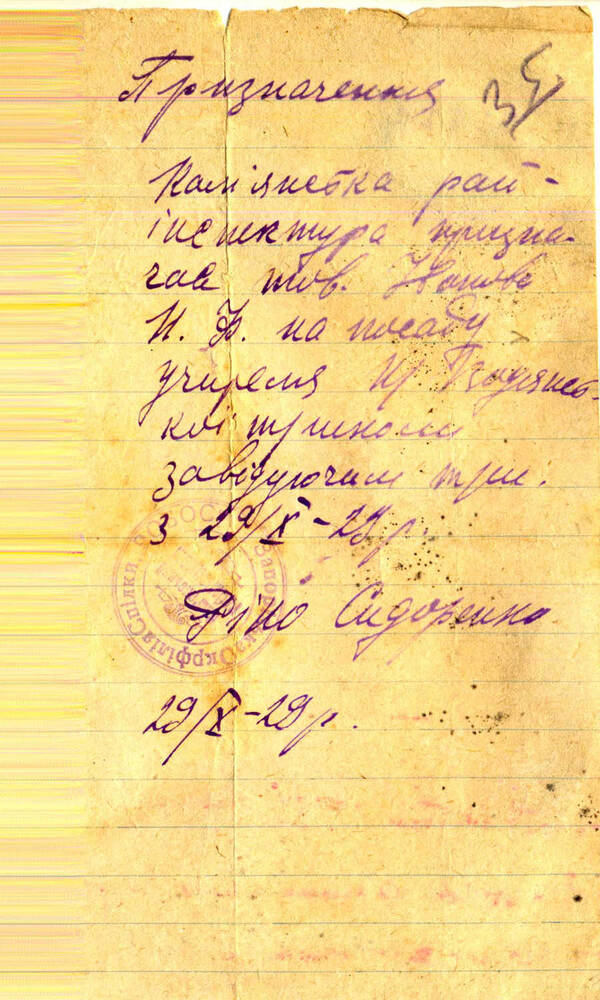 Призначення
35
Кам'янська рай-
інспектура призна-
чає тов.
И. Ф. на посаду
учителя
кої тришколи
завідуючим три.
з 29/X-29 р.
Ріно Сидоренко
29/X-29 р.